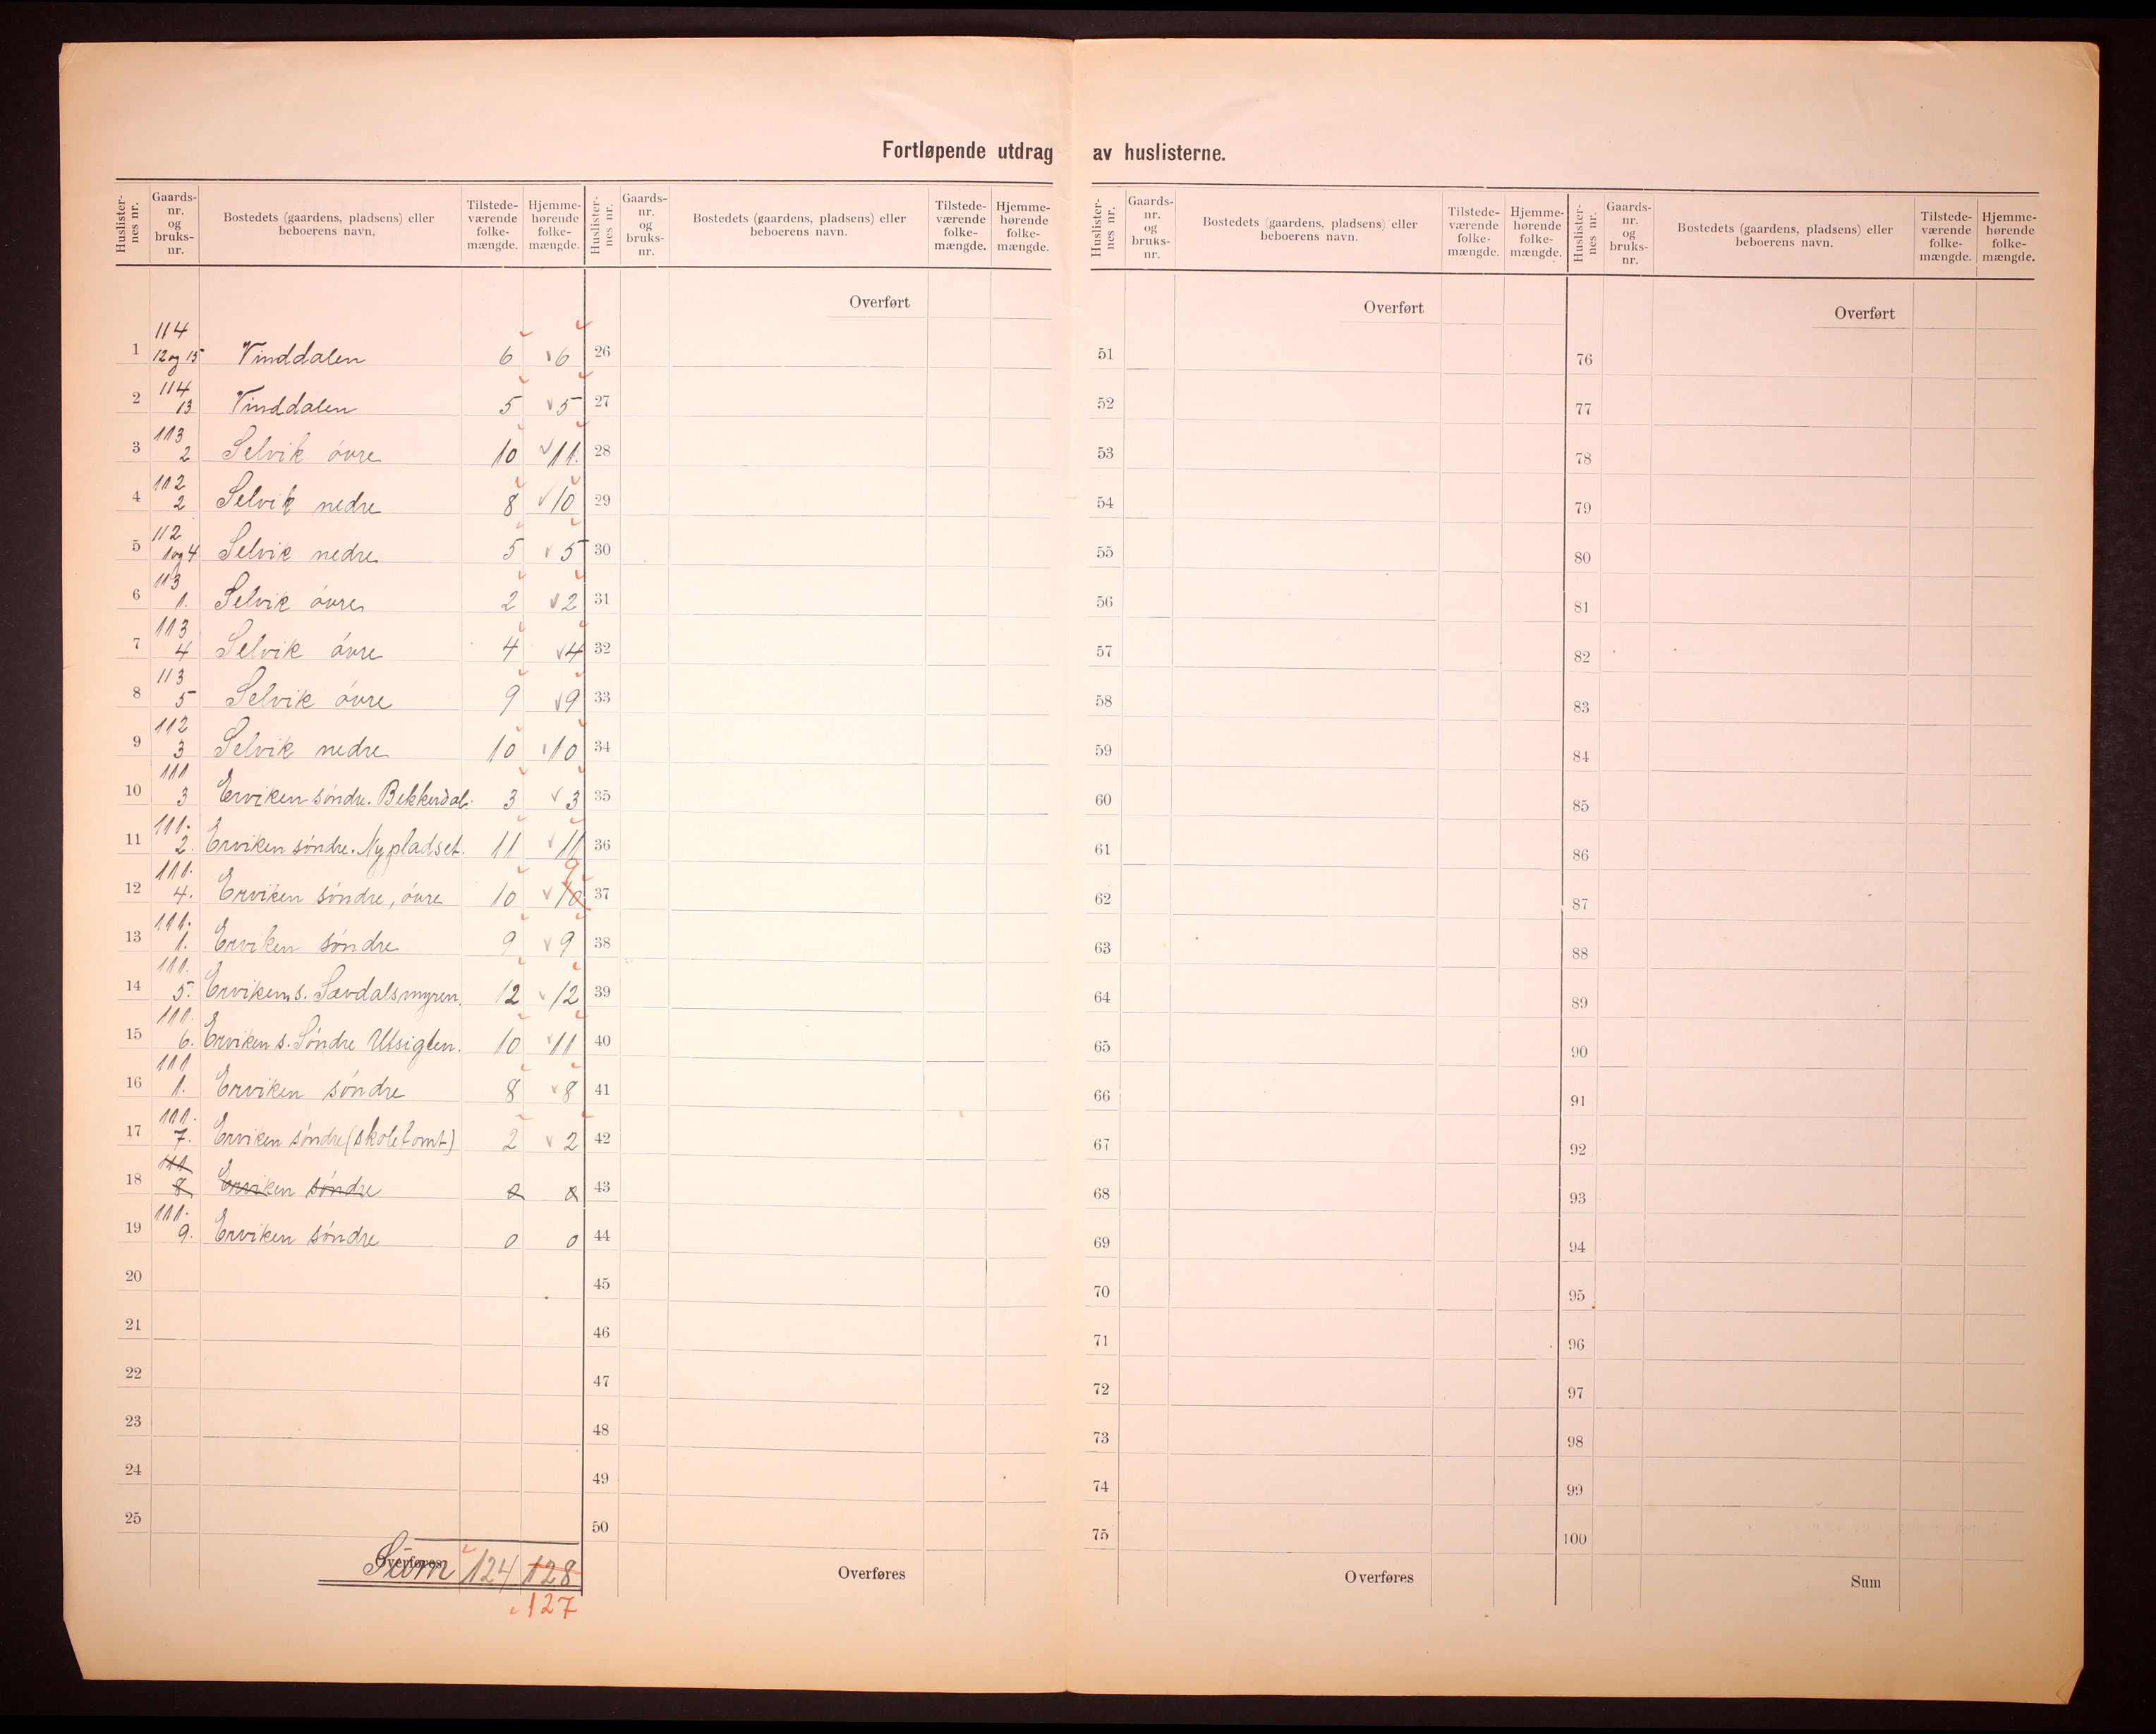 Fortløpende utdrag av huslisterne.
Huslisternes nr. Gaardsnr. og bruksnr. Bostedets (gaardens, pladsens) eller beboerens navn. Tilstedeværende folkemængde. Hjemmehørende folkemængde.
Huslisternes nr. Gaardsnr. og bruksnr. Bostedets (gaardens, pladsens) eller beboerens navn. Tilstedeværende folkemængde. Hjemmehørende folkemængde.
Huslisternes nr. Gaardsnr. og bruksnr. Bostedets (gaardens, pladsens) eller beboerens navn. Tilstedeværende folkemængde. Hjemmehørende folkemængde.
Huslisternes nr. Gaardsnr. og bruksnr. Bostedets (gaardens, pladsens) eller beboerens navn. Tilstedeværende folkemængde. Hjemmehørende folkemængde.
Overført Overført Overført
1 114 12 og 15 Vinddalen 6 6 26 51 76
2 114 13 Vinddalen 5 5 27 52 77
3 113 2 Selvik övre 10 11. 28 53 78
4 112 2 Selvik nedre 8 10 29 54 79
5 112 1 og 4 Selvik nedre 5 5 30 55 80
6 113 1. Selvik övre 2 2 31 56 81
7 113 4 Selvik övre 4 4 32 57 82
8 113 5 Selvik övre 9 9 33 58 83
9 112 3 Selvik nedre 10 10 34 59 84
10 111 3 Erviken söndre. Bekkerdal. 3 3 35 60 85
11 111. 2. Erviken söndre. Nypladset. 11 11 36 61 86
12 111. 4. Erviken söndre, övre 10 10 9 37 62 87
13 111. 1. Erviken söndre 9 9 38 63 88
14 111. 5. Erviken s. Sævdalsmyren. 12 12 39 64 89
15 111. 6. Erviken s. Söndre Utsigten. 10 11 40 65 90
16 111 1. Erviken söndre 8 8 41 66 91
17 111. 7. Erviken söndre (skoletomt) 2 2 42 67 92
18 111 8 Erviken söndre 0 0 43 68 93
19 111. 9. Erviken söndre 0 0 44 69 94
20 45 70 95
21 46 71 96
22 47 72 97
23 48 73 98
24 49 74 99
25 50 75 100
Overføres Sum 124 128 Overføres Overføres Sum
127